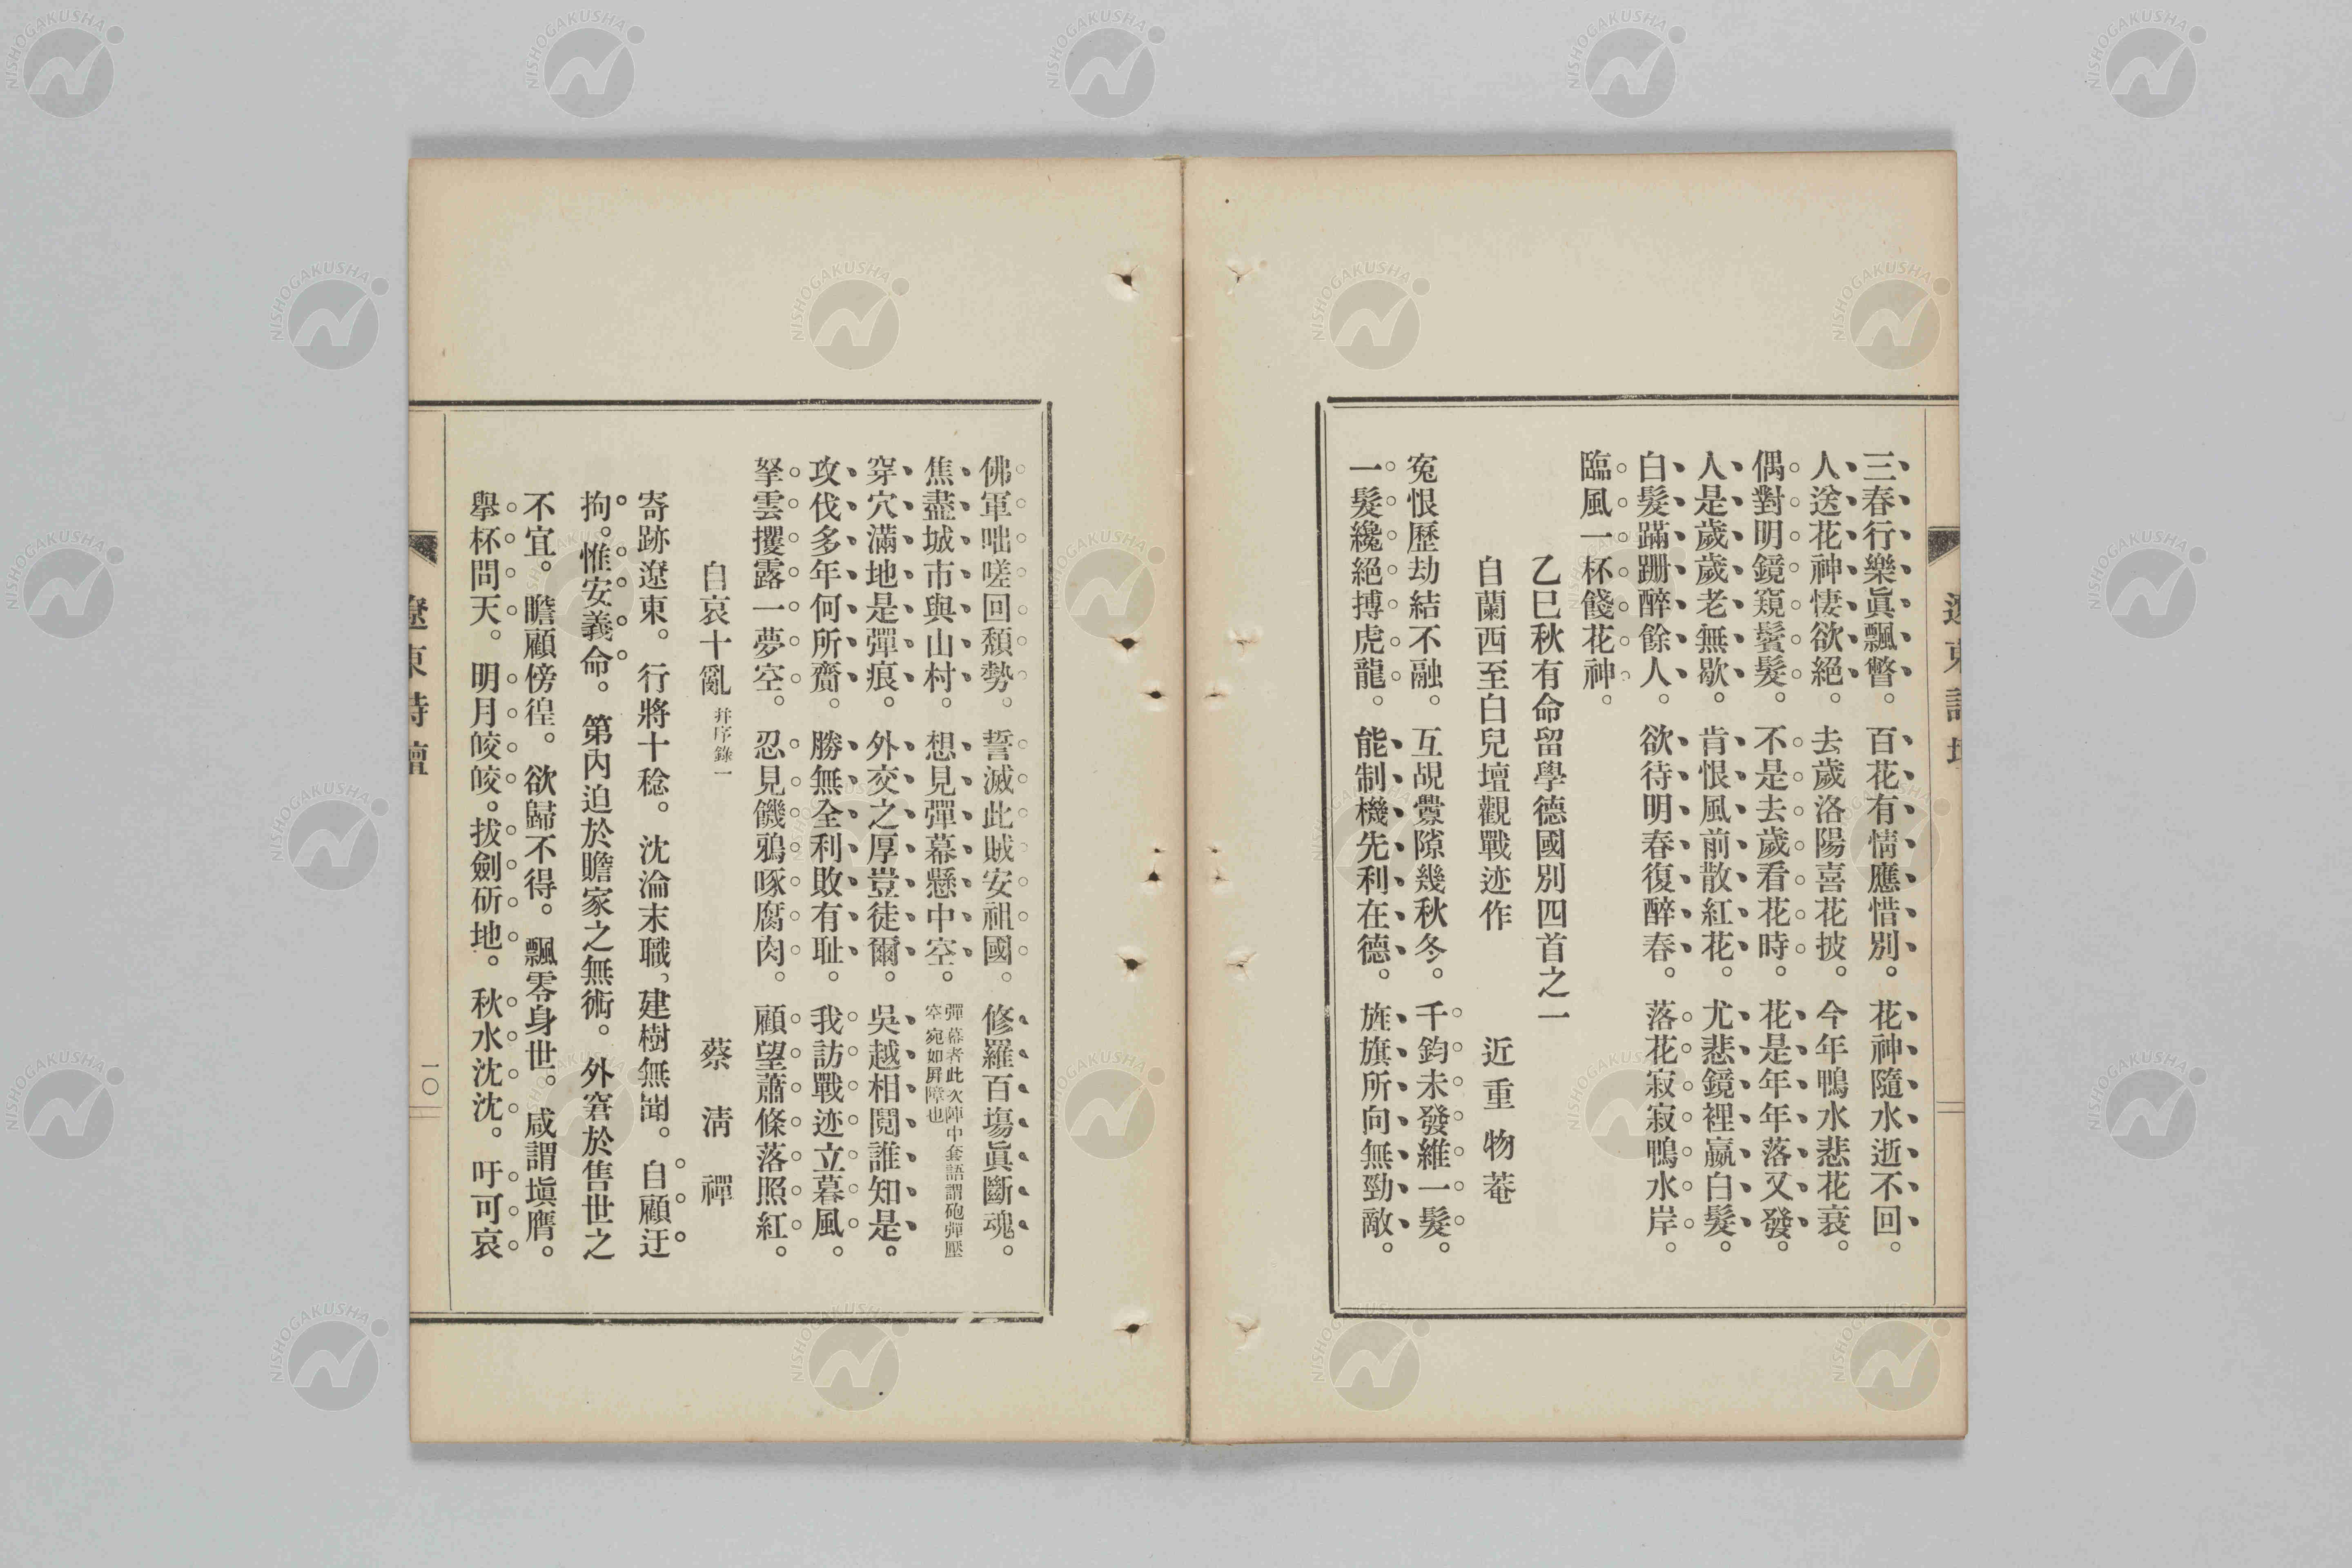 三春行樂眞飄瞥。百花有情應惜別。花神隨水逝不回。
人送花神悽欲絕。去歲洛陽喜花披。今年鴨水悲花衰。
偶對明鏡窺鬢髮。不是去歲看花時。花是年年落又發。
人是歲歲老無歇。肯恨風前散紅花。尤悲鏡裡嬴白髮。
白髮蹣跚醉餘人。欲待明春復醉春。落花寂寂鴨水岸。
臨風一杯餞花神。
乙巳秋有命留學德國別四首之一
自蘭西至白兒壇觀戰迹作　近重物菴
寃恨歷劫結不融。互覘釁隙幾秋冬。千鈞未發維一髮。
一髮纔絕搏虎龍。能制機先利在德。旌旗所向無勁敵。
佛軍咄嗟回頽勢。誓滅此賊安祖國。修羅百塲眞斷魂。
焦盡城市與山村。想見彈幕懸中空。彈幕者此次陣中套語謂砲彈壓空宛如屛障也
穿穴滿地是彈痕。外交之厚豈徒爾。吳越相鬩誰知是。
攻伐多年何所齎。勝無全利敗有耻。我訪戰迹立暮風。
拏雲攫露一夢空。忍見饑鴉啄腐肉。顧望蕭條落照紅。
自哀十亂 幷序錄一　蔡淸禪
寄跡遼東。行將十稔。沈淪末職。建樹無聞。自顧迂
拘。惟安義命。第內迫於贍家之無術。外窘於售世之
不宜。瞻顧傍徨。欲歸不得。飄零身世。咸謂塡膺。
擧杯問天。明月皎皎。拔劍斫地。秋水沈沈。吁可哀
遼東詩壇
一〇
NISHOGAKUSHA